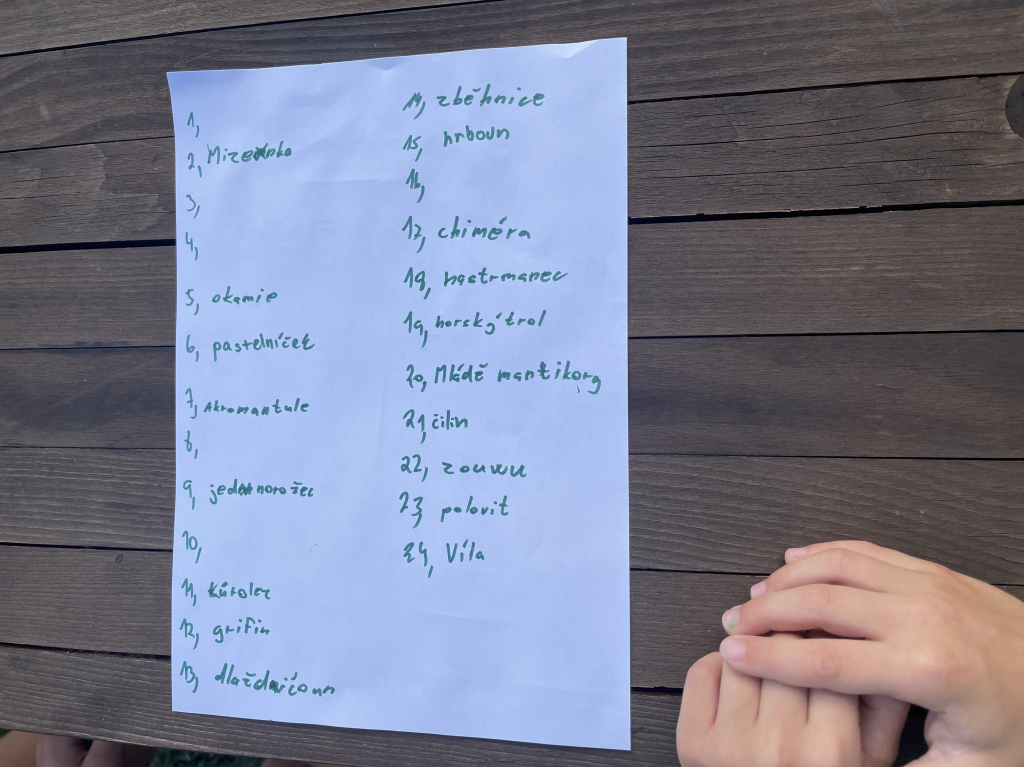 1,
2, Mizednka
3,
4,
5, okamie
6, pastelníček
7, Akromantule
8,
9, jednorožec
10,
11, Kůrolez
12, grifin
13, dlaždničoun
14, zběhnice
15, hrboun
16,
17, chiméra
18, hastrmanec
19, horský trol
20, Mládě mantikory
21, čilin
22, zouwu
23, polovit
24, Víla